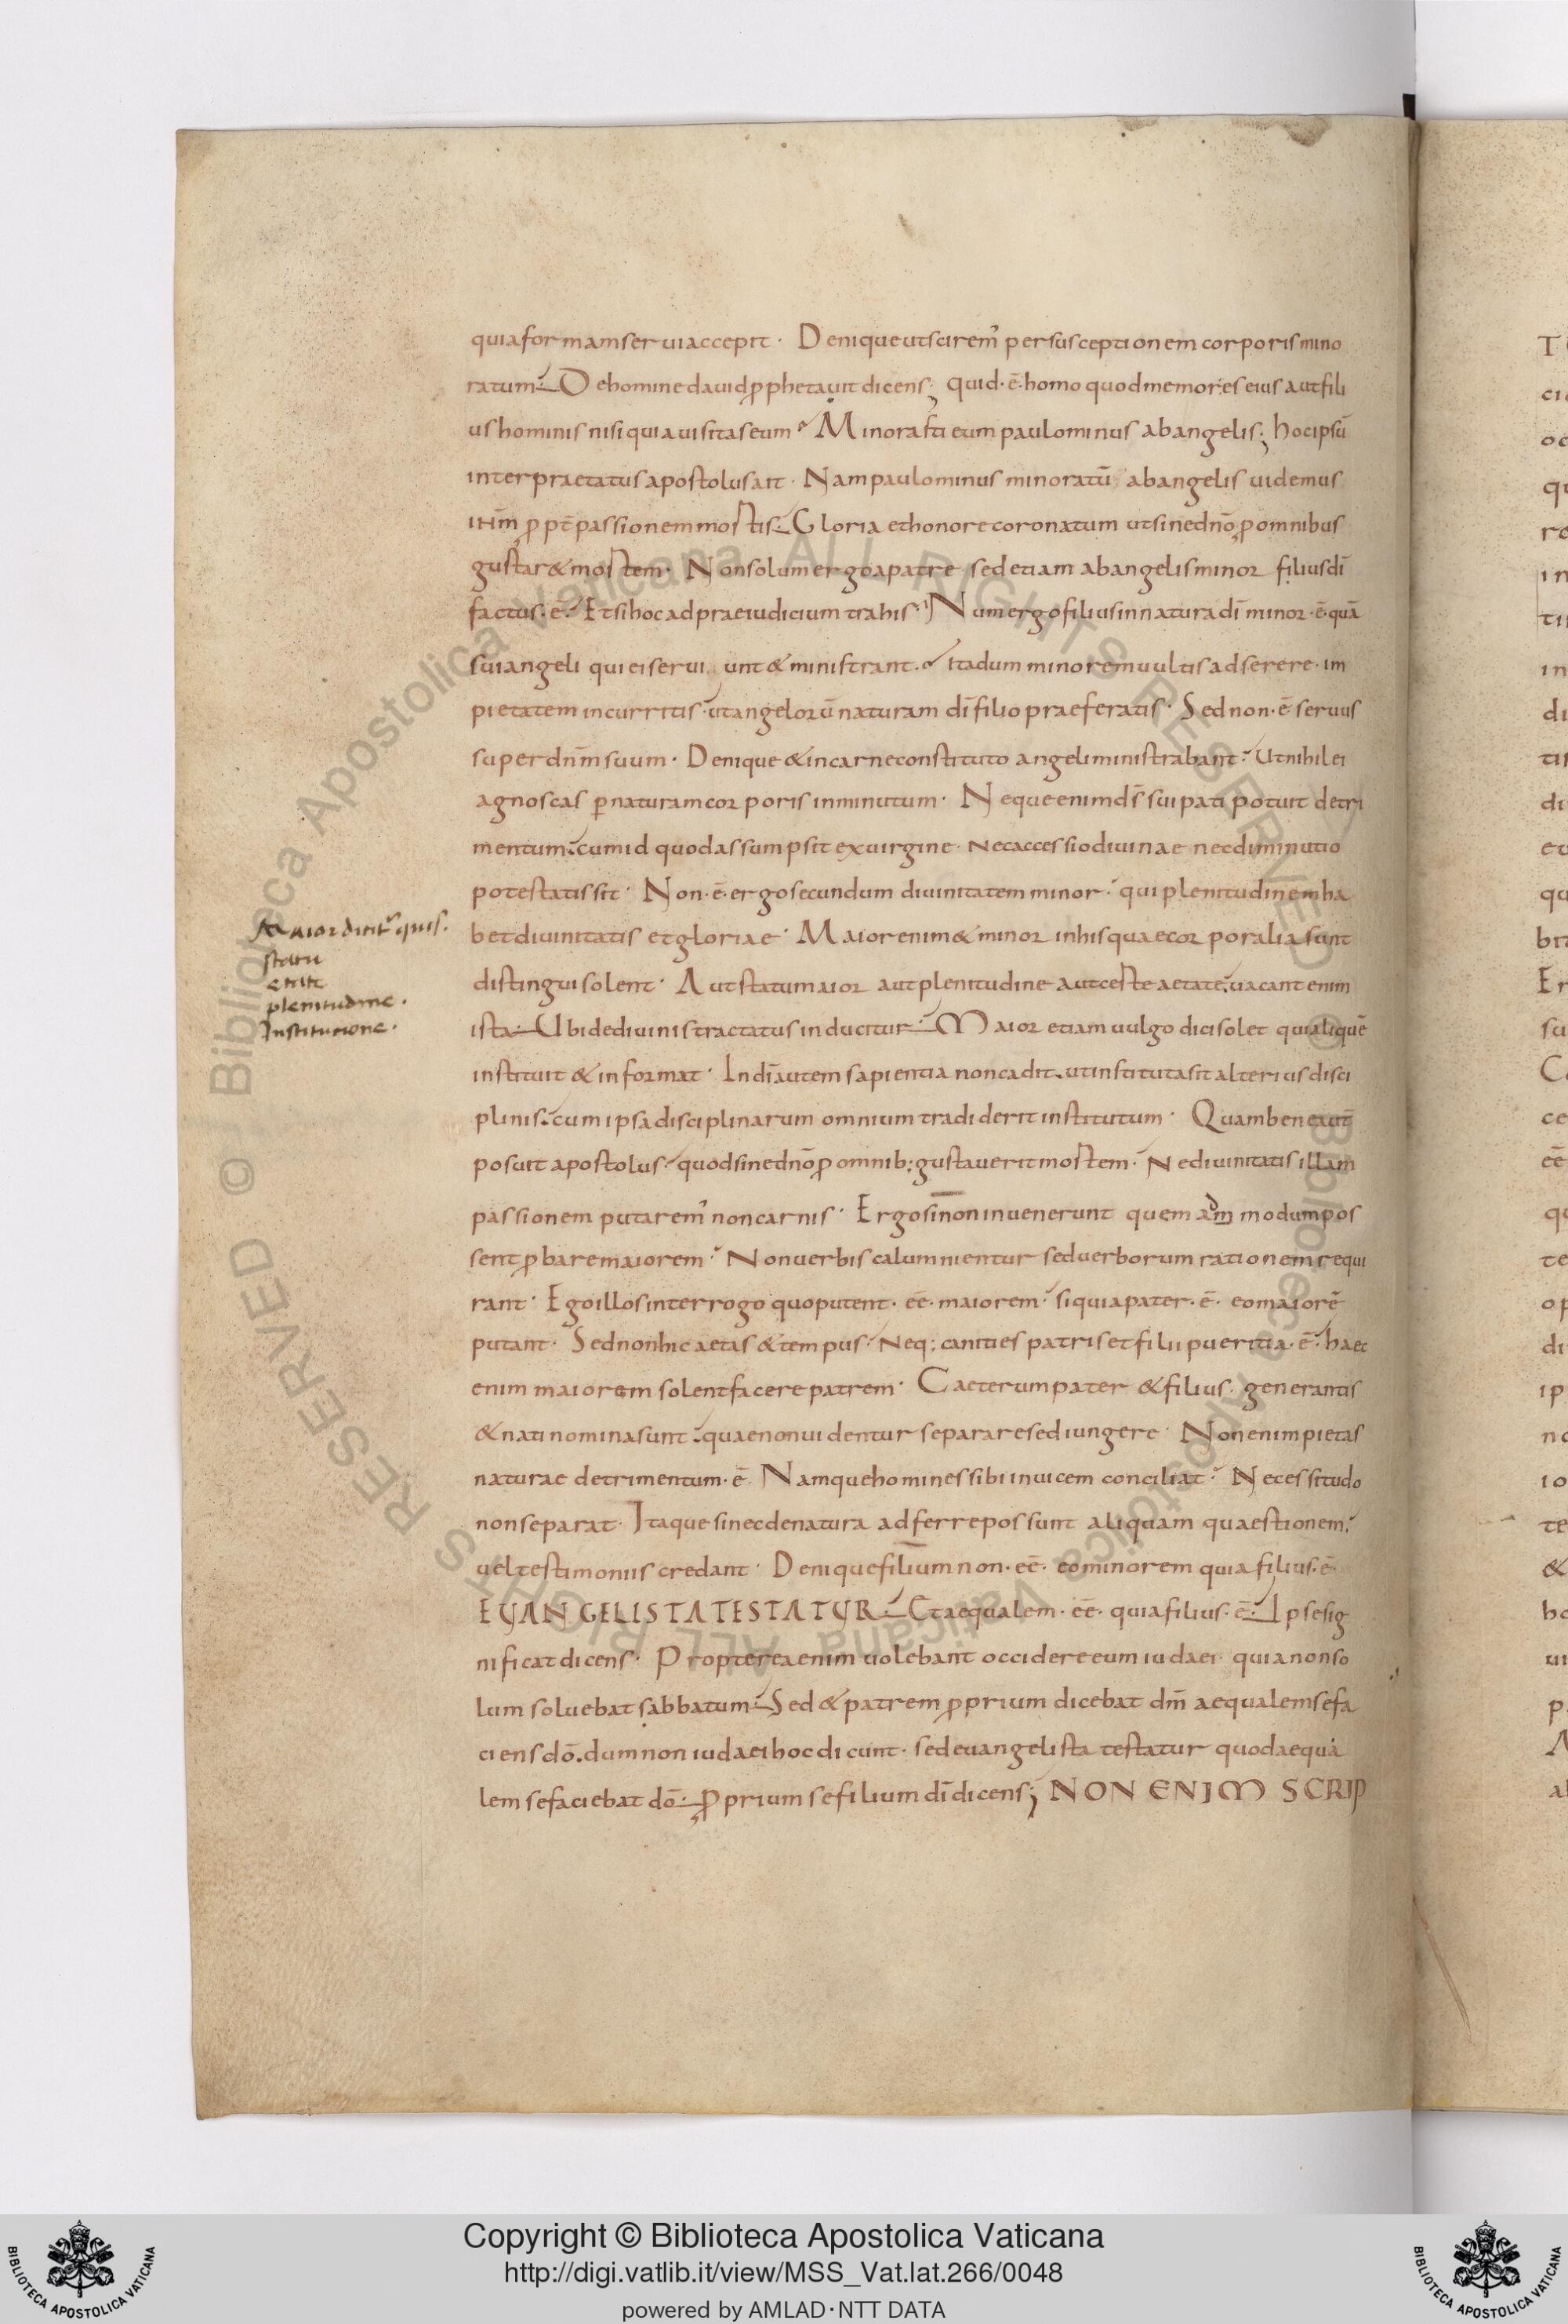 quia formam serui accepit · Denique ut sciremꝰ per susceptionem corporis mino
ratum · De homine dauid ꝓphetauit dicens; quid · ē · homo quod memor es eius aut fili
us hominis nisi quia uisitas eum · Minorasti eum paulominus ab angelis; hoc ipsū
interpraetatus apostolus ait · Nam paulominus minoratū ab angelis uidemus
ihm̄ ꝓpt̄ passionem mortis · Gloria et honore coronatum ut sine dnō ꝓ omnibus
gustar& mortem · Non solum ergo a patre sed etiam ab angelis minor filius dī
factus · ē · Et si hoc ad praeiudicium trahis · Num ergo filius in natura dī minor · ē · quā
sui angeli qui ei serui unt & ministrant · Ita dum minorem uultis adserere · im
pietatem incurritis · ut angelorū naturam dī filio praeferatis · Sed non · ē seruus
super dnm̄ suum · Denique & in carne constituto angeli ministrabant · Ut nihil ei
agnoscas ꝑ naturam corporis inminutum · Neque enim ds̄ sui pati potuit detri
mentum · cum id quod assumpsit ex uirgine · nec accessio diuinae nec diminutio
potestatis sit · Non · ē · ergo secundum diuinitatem minor · qui plenitudinem ha
bet diuinitatis et gloriae · Maior enim & minor in his quae corporalia sunt
distingui solent · Aut statu maior aut plenitudine aut ceste aetate · uacant enim
ista · Ubi de diuinis tractatus inducitur · Maior etiam uulgo dici solet qui aliquē
instituit & informat · In dī autem sapientia non cadit · ut instituta sit alterius disci
plinis · cum ipsa disciplinarum omnium tradiderit institutum · Quam bene aut̄
posuit apostolus · quod sine dnō ꝓ omnib; gustauerit mortem · Ne diuinitatis illam
passionem putaremꝰ non carnis · Ergo si non inuenerunt quem adm modum pos
sent ꝓbare maiorem · Non uerbis calumnientur sed uerborum rationem requi
rant · Ego illos interrogo quo putent · eē · maiorem · si quia pater · ē · eo maiorē
putant · Sed non hic aetas & tempus · Neq; canities patris et filii pueritia · ē · haec
enim maiorem solent facere patrem · Caeterum pater & filius · generantis
& nati nomina sunt · quae non uidentur separare sed iungere · Non enim pietas
naturae detrimentum · ē Namque homines sibi inuicem conciliat · Necessitudo
non separat · Itaque si nec de natura adferre possunt aliquam quaestionem ·
uel testimoniis credant · Denique filium non · eē · eo minorem quia filius · ē ·
EUANGELISTA TESTATUR · Et aequalem · eē · quia filius · ē · Ipse sig
nificat dicens · Propterea enim uolebant occidere eum iudaei · quia non so
lum soluebat sabbatum · Sed & patrem ꝓprium dicebat dm̄ aequalem se fa
ciens dō · dum non iudaei hoc dicunt · sed euangelista testatur quod aequa
lem se faciebat dō · ꝓprium se filium dī dicens; NON ENIM SCRIP
Maior dicitꝰ quis ·
statu
etate
plenitudine ·
Institutione ·
Copyright © Biblioteca Apostolica Vaticana
http://digi.vatlib.it/view/MSS_Vat.lat.266/0048
powered by AMLAD·NTT DATA
BIBLIOTECA APOSTOLICA VATICANA
BIBLIOTECA APOSTOLICA VATICANA
© Biblioteca Apostolica Vaticana ALL RIGHTS RESERVED © Biblioteca Apostolica Vaticana ALL RIGHTS RESERVED